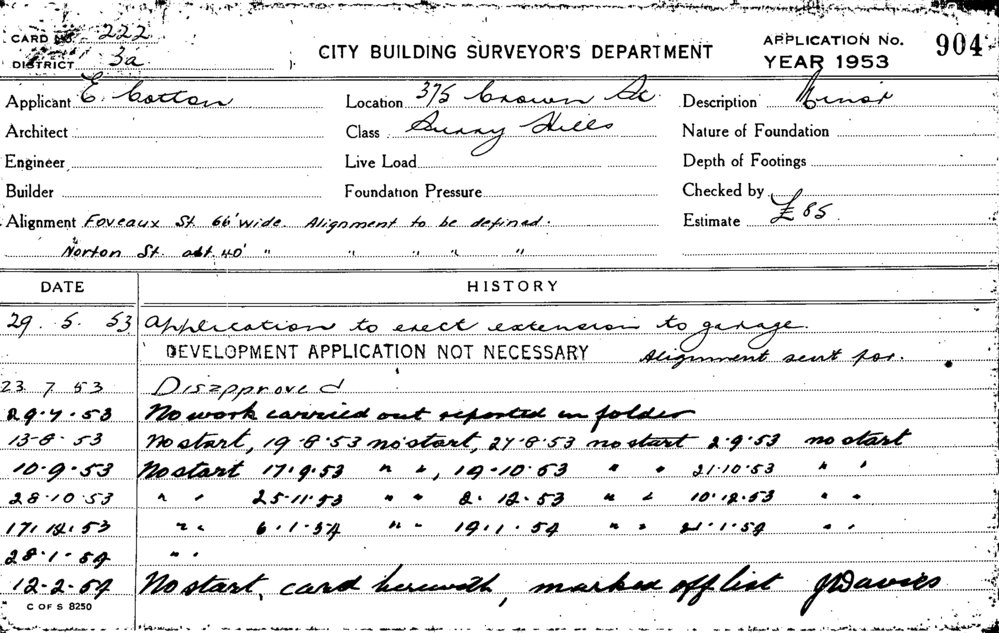 CARD No. 222
DISTRICT 3a
CITY BUILDING SURVEYOR'S DEPARTMENT
APPLICATION No. 904
YEAR 1953
Applicant E. Cotton Location 375 Crown St. Description Minor
Architect Class Surry Hills Nature of Foundation
Engineer Live Load Depth of Footings
Builder Foundation Pressure Checked by
Alignment Foveaux St. 66' wide. Alignment to be defined. Estimate £85
Norton St. abt. 40' " " " " "
DATE HISTORY
29. 5. 53 Application to erect extension to garage.
DEVELOPMENT APPLICATION NOT NECESSARY Alignment sent for.
23 7 53 Disapproved
29.7.53 No work carried out reported in folder
13-8-53 No start, 19-8-53 no start, 27.8.53 no start 2.9.53 no start
10.9.53 No start 17.9.53 " ", 19-10-53 " " 21.10.53 " "
28.10.53 " " 25.11.53 " " 2. 12.53 " " 10.12.53 " "
17.12.53 " " 6.1.54 " " 19.1.54 " " 21.1.54 " "
28.1.54 " "
12-2-54 No start, card herewith, marked off list J Davies
C OF S 8250